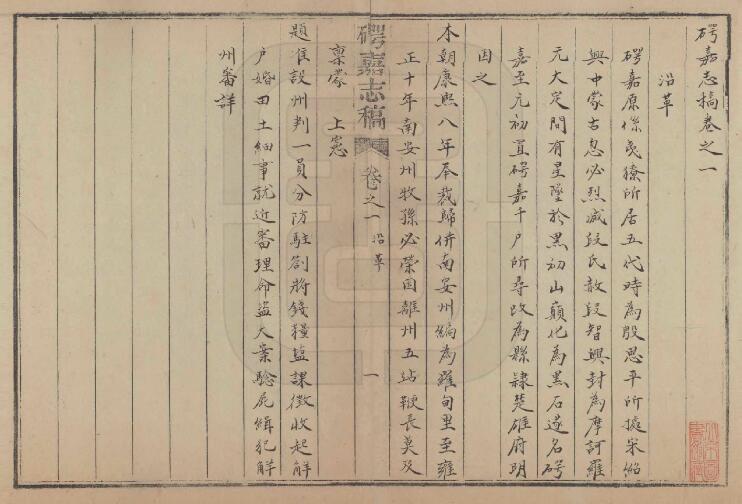 碍嘉志稿卷之一
沿革
碍嘉原係夷獠所居五代時為段思平所據宋紹
興中蒙古忽必烈滅段氏敗段智興封為摩訶羅
元大定間有星墜於黑初山巔化為黑石遂名碍
嘉至元初置碍嘉千戶所尋改為縣隸楚雄府明
因之
本朝康熙八年奉裁歸併南安州編為雍甸里至雍
正十年南安州牧孫必榮因離州五站鞭長莫及
稟蒙 上憲
碍嘉志稿 卷之一 沿革 一
題准設州判一員分防駐劄將錢糧鹽課徵收起解
戶婚田土細事就近審理命盜大案驗屍緝犯解
州審詳